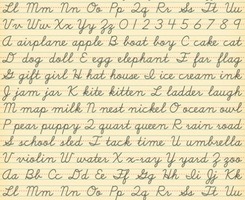 Ll Mm Nn Oo Pp Qq Rr Ss Tt Uu
Vv Ww Xx Yy Zz 0 1 2 3 4 5 6 7 8 9
A airplane apple B boat boy C cake cat
D dog doll E egg elephant F far flag
G gift girl H hat house I ice cream ink
J jam jar K kite kitten L ladder laugh
M map milk N nest nickel O ocean owl
P pear puppy Q quart queen R rain road
S school sled T tack time U umbrella
V violin W water X x-ray Y yard Z zoo
Aa Bb Cc Dd Ee Ff Gg Hh Ii Jj Kk
Ll Mm Nn Oo Pp Qq Rr Ss Tt Uu